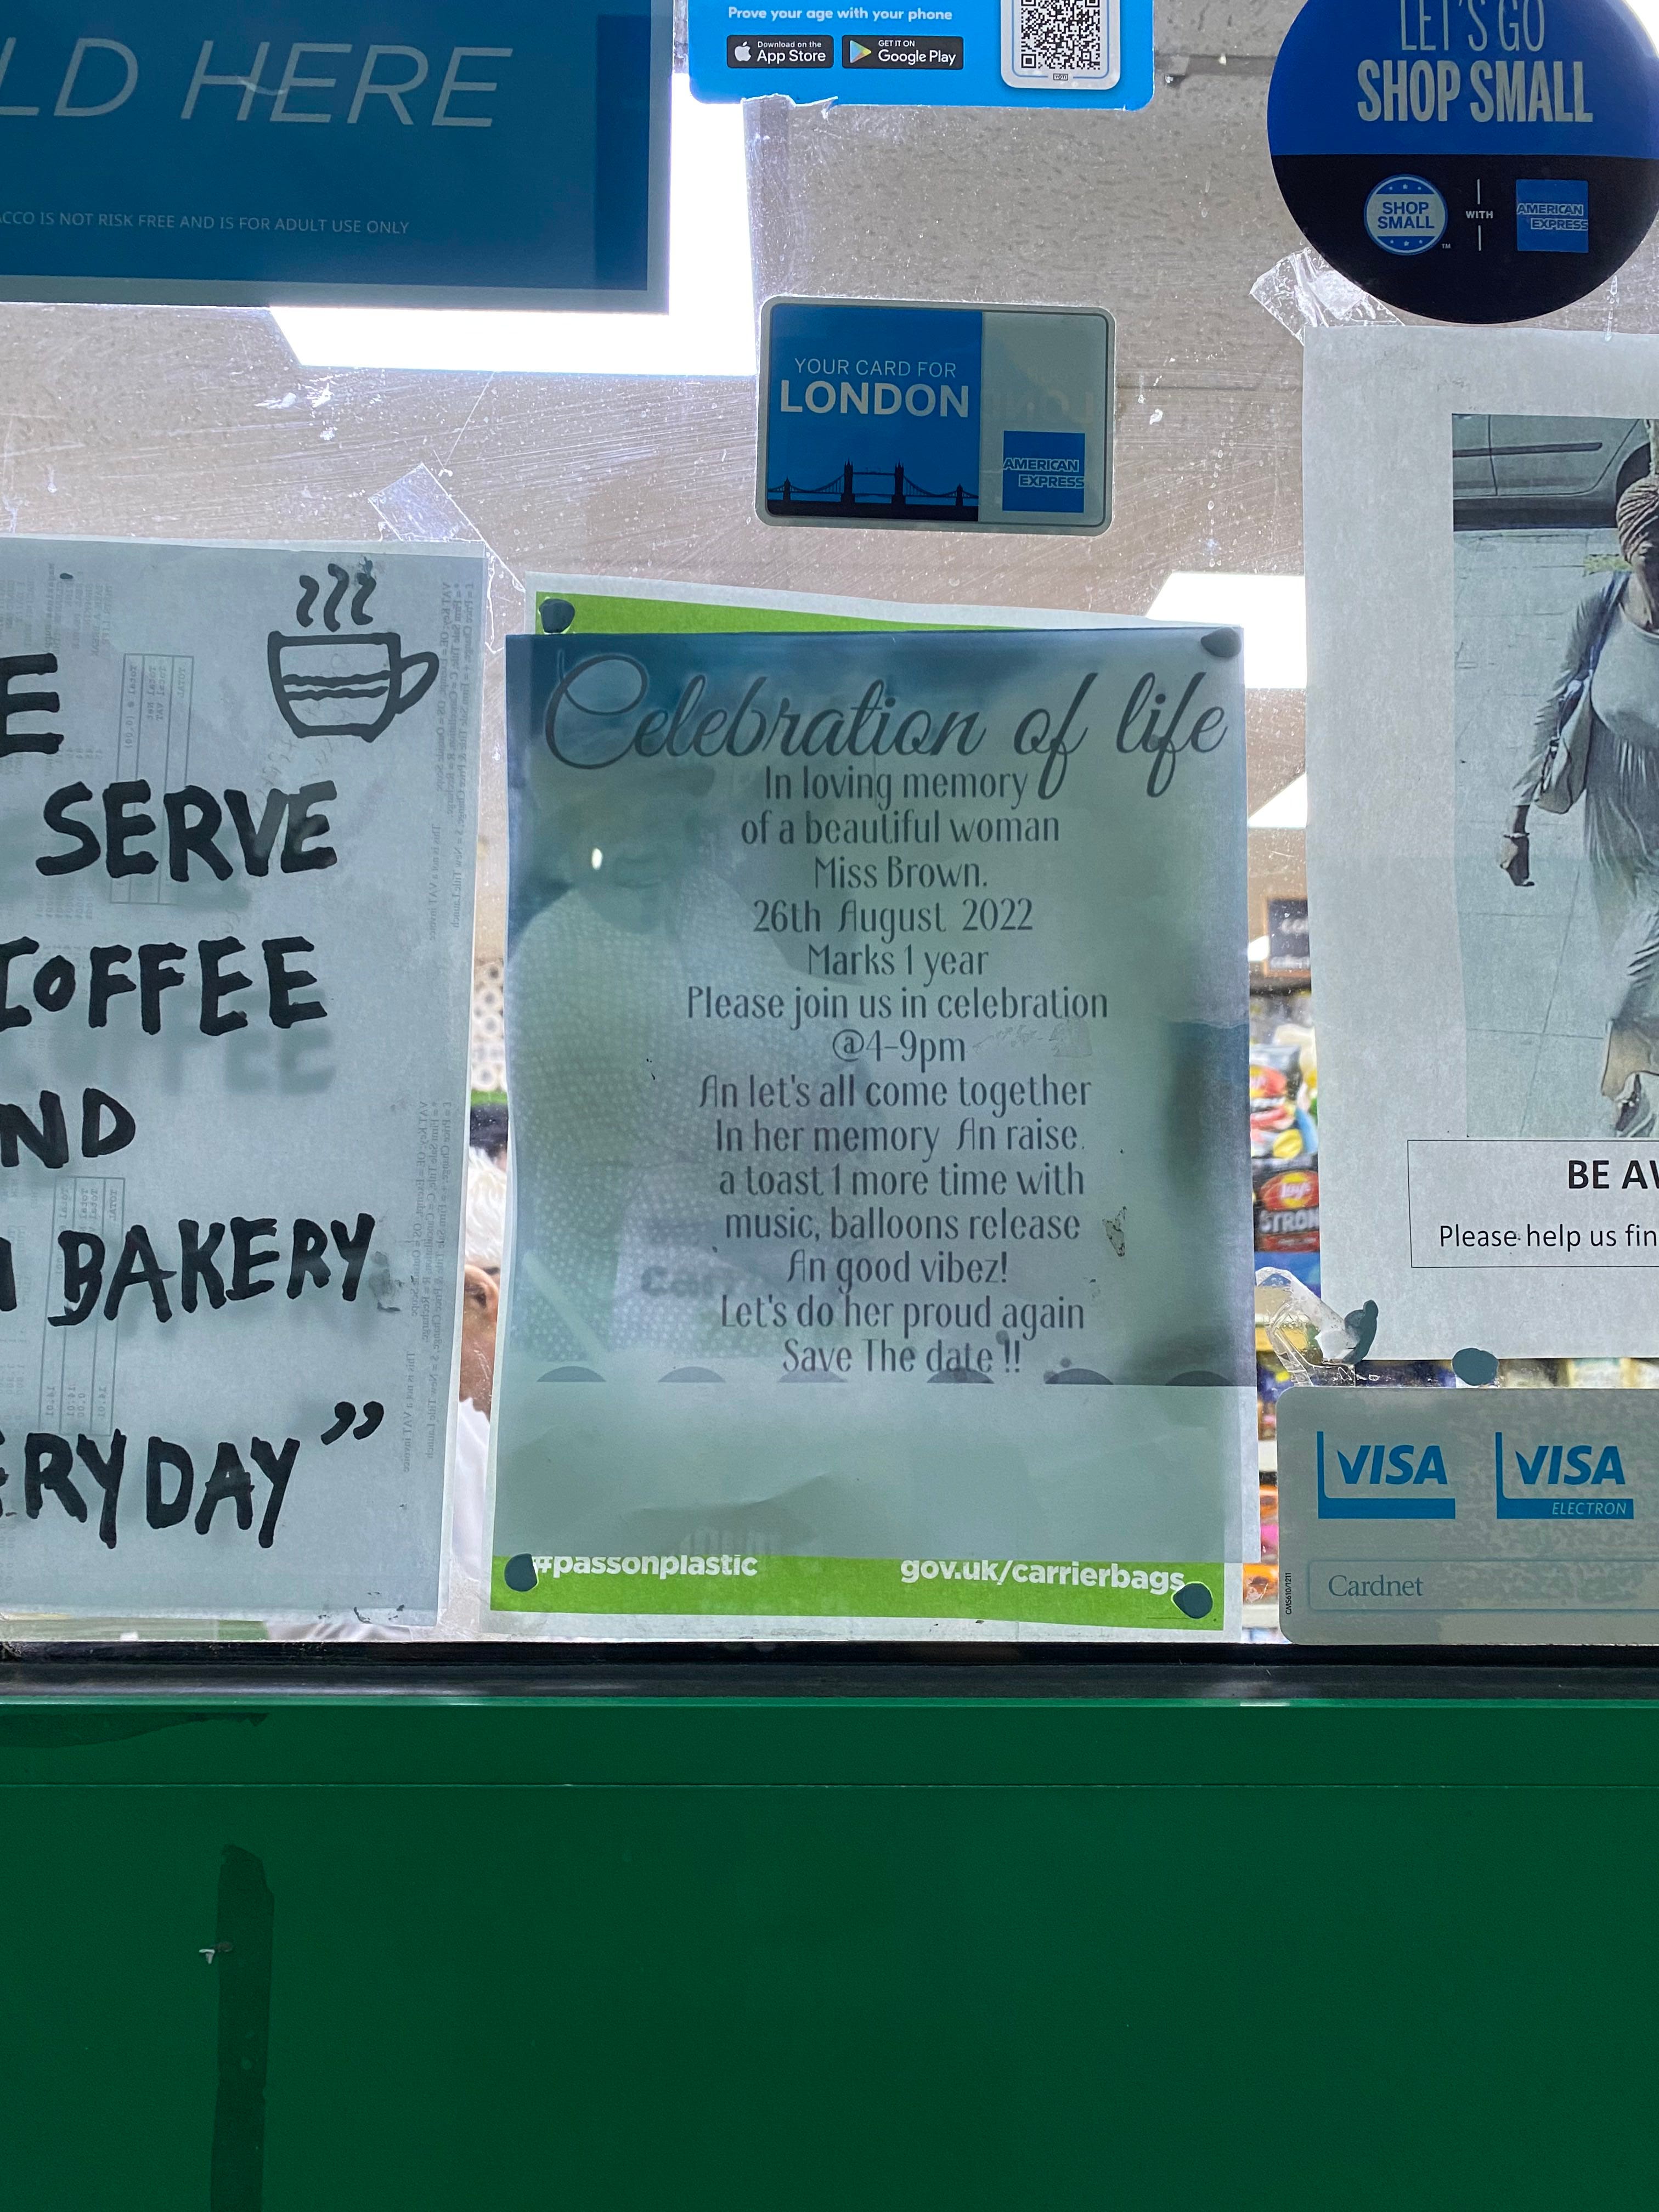 LD HERE
ACCO IS NOT RISK FREE AND IS FOR ADULT USE ONLY
Prove your age with your phone
Download on the
App Store
GET IT ON
Google Play
YOTI
LET'S GO
SHOP SMALL
SHOP
SMALL
™
WITH
AMERICAN
EXPRESS
YOUR CARD FOR
LONDON
AMERICAN
EXPRESS
E
SERVE
COFFEE
ND
BAKERY
ERYDAY”
Celebration of life
In loving memory
of a beautiful woman
Miss Brown.
26th August 2022
Marks 1 year
Please join us in celebration
@4-9pm
An let's all come together
In her memory An raise.
a toast 1 more time with
music, balloons release
An good vibez!
Let's do her proud again
Save The date !!
#passonplastic
gov.uk/carrierbags
BE AW
Please help us fin
VISA
VISA
ELECTRON
Cardnet